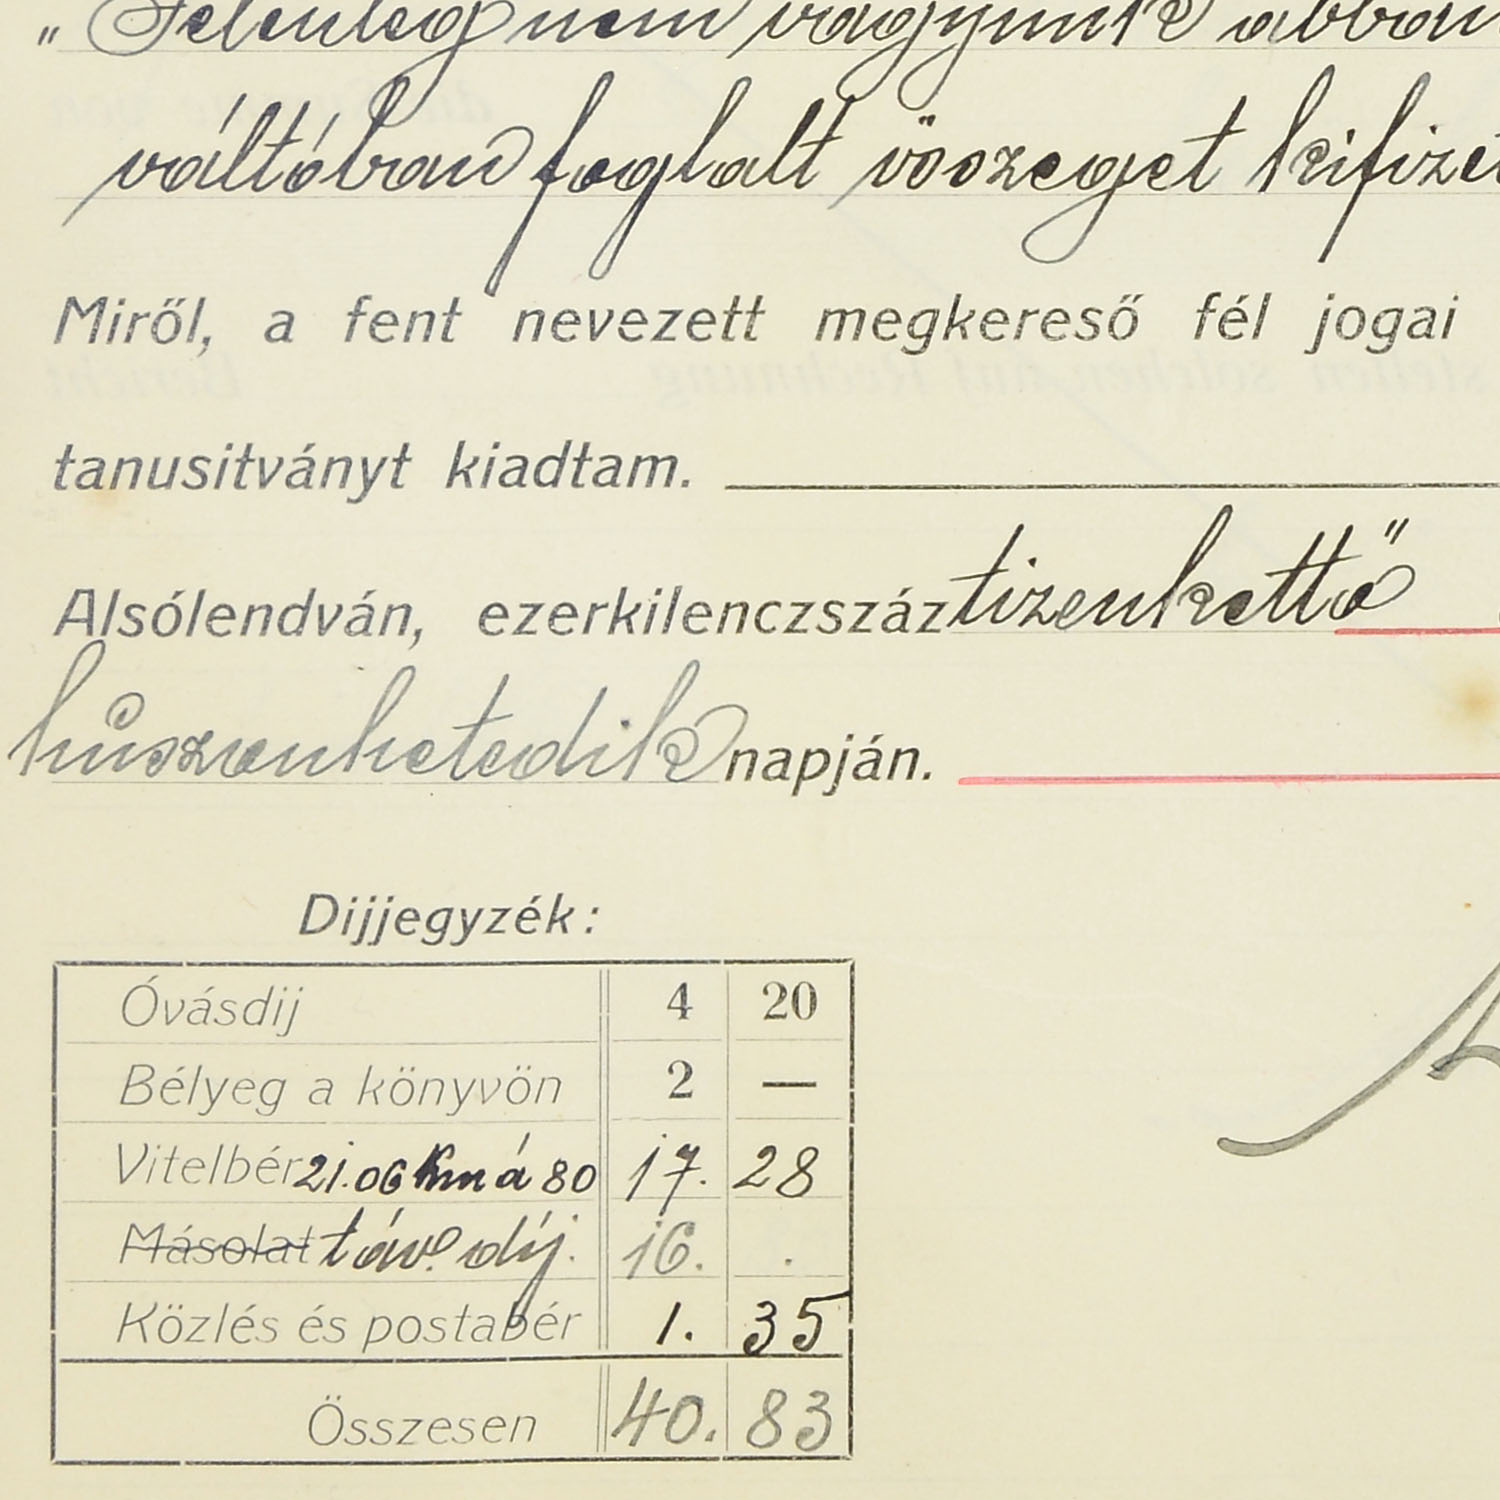 „Jelenleg nem vagyunk abban
váltóban foglalt összeget kifizet
Miről, a fent nevezett megkereső fél jogai
tanusitványt kiadtam.
Alsólendván, ezerkilenczszáz tizenkettő
húszonhetedik napján.
Dijjegyzék:
Óvásdij 4 20
Bélyeg a könyvön 2 —
Vitelbér 21.06 Km á 80 17. 28
Másolat táv. díj. 16. .
Közlés és postabér 1. 35
Összesen 40. 83